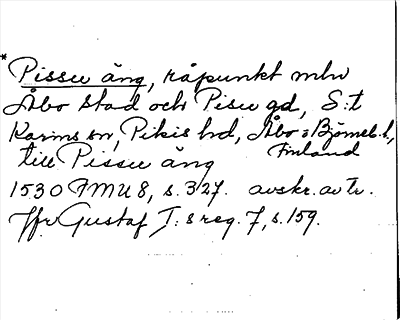 *
Pissu äng, råpunkt mln
Åbo stad och Pisu gd, S:t
Karins sn, Pikis hd, Åbo o Björneb. l,
Finland
till Pissu äng
1530 FMU 8, s. 327. avskr. av tr.
Jfr Gustaf I:s reg. 7, s. 159.